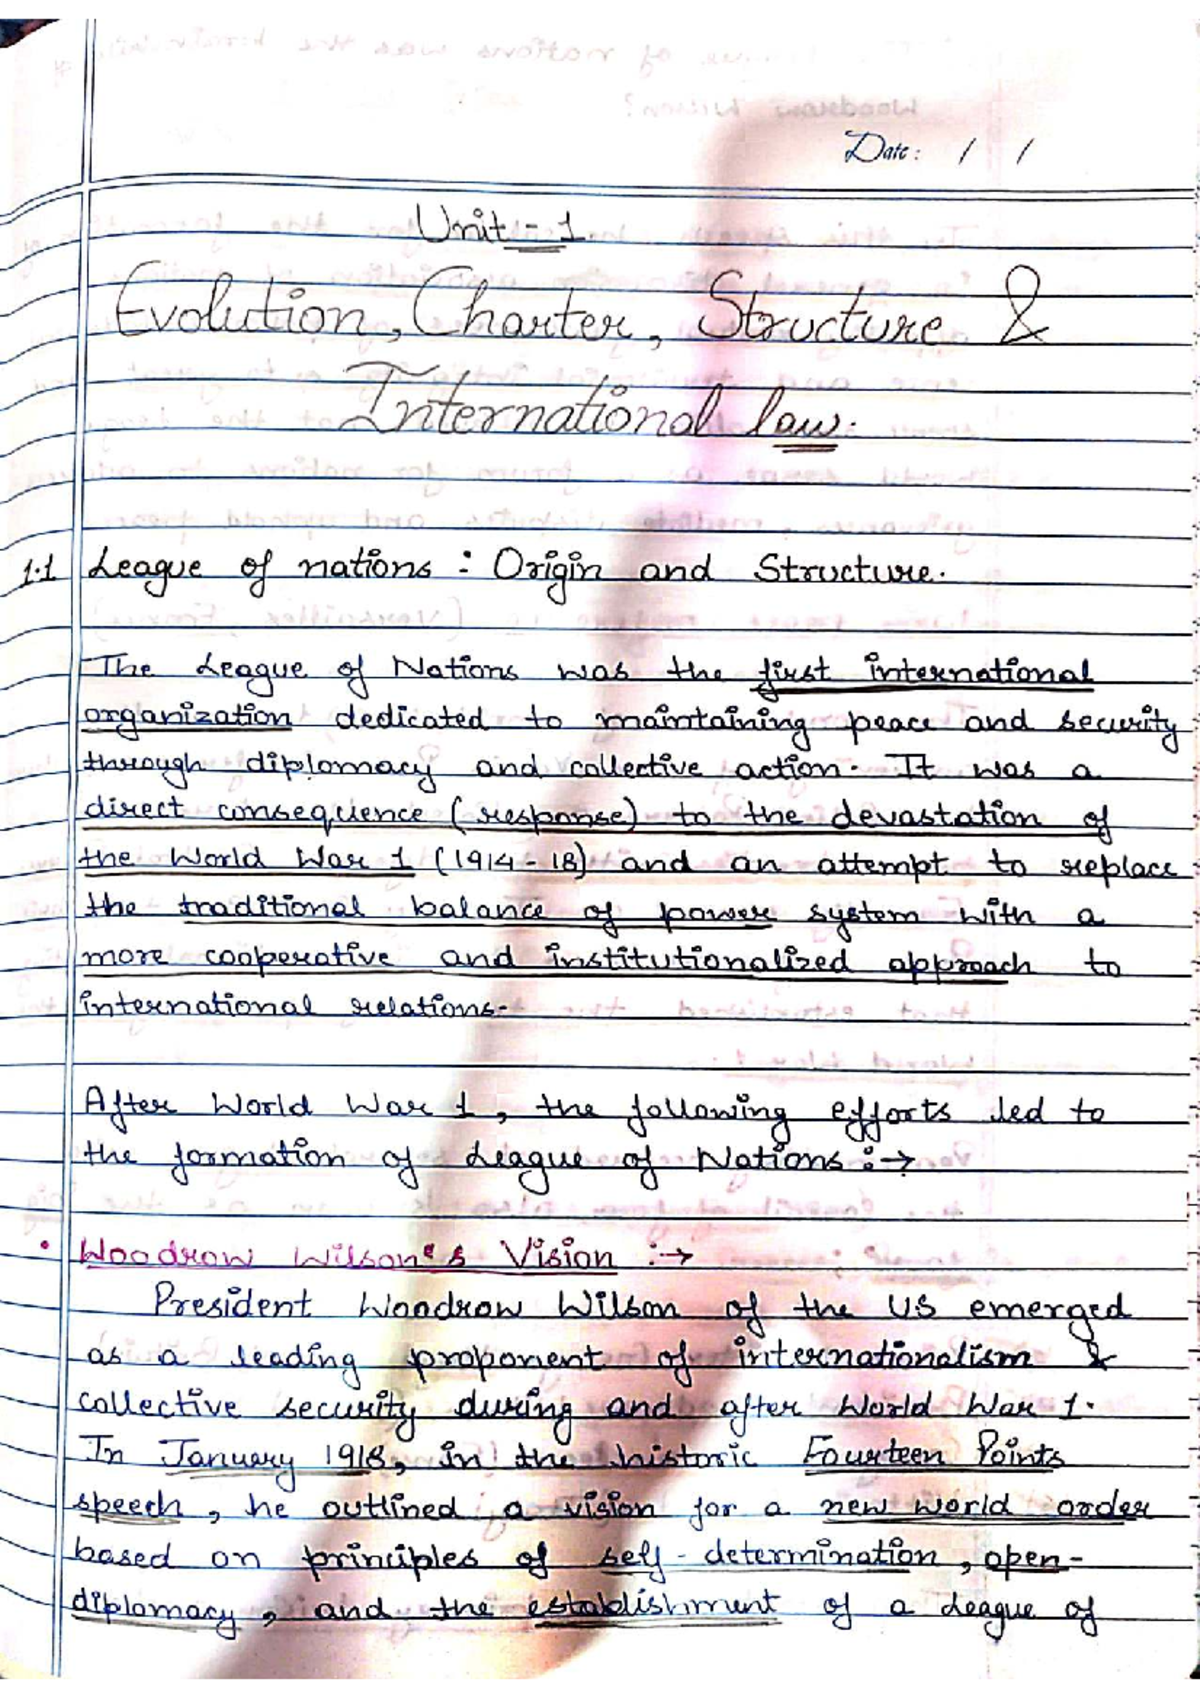 Date: / /
Unit - 1
Evolution, Charter, Structure &
International law.
1.1 League of nations : Origin and Structure.
The League of Nations was the first international
organization dedicated to maintaining peace and security
through diplomacy and collective action. It was a
direct consequence (response) to the devastation of
the World War 1 (1914-18) and an attempt to replace
the traditional balance of power system with a
more cooperative and institutionalized approach to
international relations.
After World War 1, the following efforts led to
the formation of League of Nations :→
• Woodrow Wilson's Vision :→
President Woodrow Wilson of the US emerged
as a leading proponent of internationalism &
collective security during and after World War 1.
In January 1918, in the historic Fourteen Points
speech, he outlined a vision for a new world order
based on principles of self-determination, open-
diplomacy, and the establishment of a League of